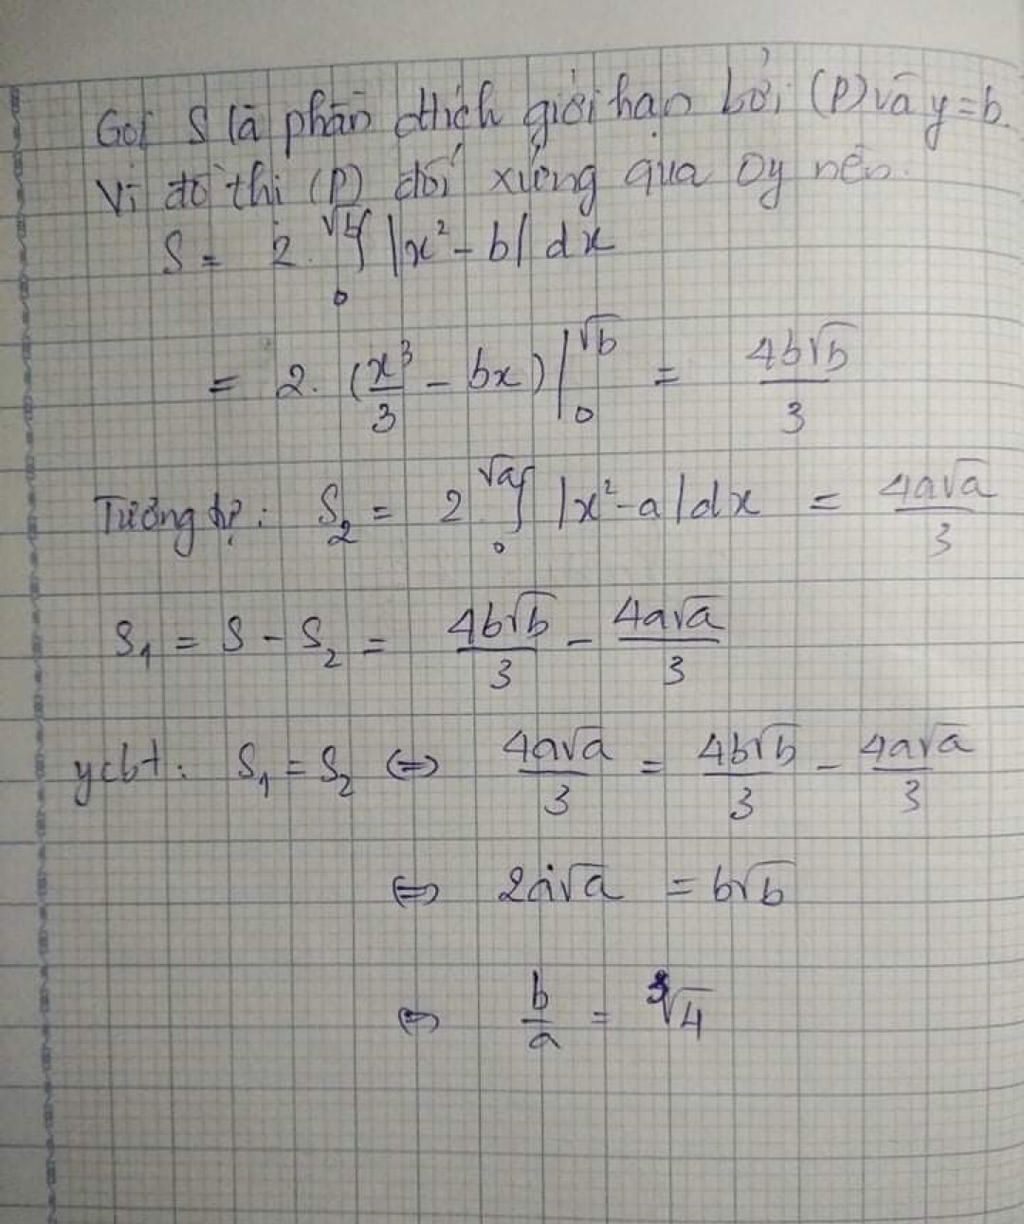 Gọi S là phần dtích giới hạn bởi (P) và y=b.
Vì đồ thị (P) đối xứng qua Oy nên.
S = 2. ∫₀^√b |x² - b| dx
= 2. (x³/3 - bx) |₀^√b = 4b√b/3
Tương tự: S₂ = 2 ∫₀^√a |x² - a| dx = 4a√a/3
S₁ = S - S₂ = 4b√b/3 - 4a√a/3
ycbt: S₁ = S₂ ⇔ 4a√a/3 = 4b√b/3 - 4a√a/3
⇔ 2a√a = b√b
⇔ b/a = ³√4